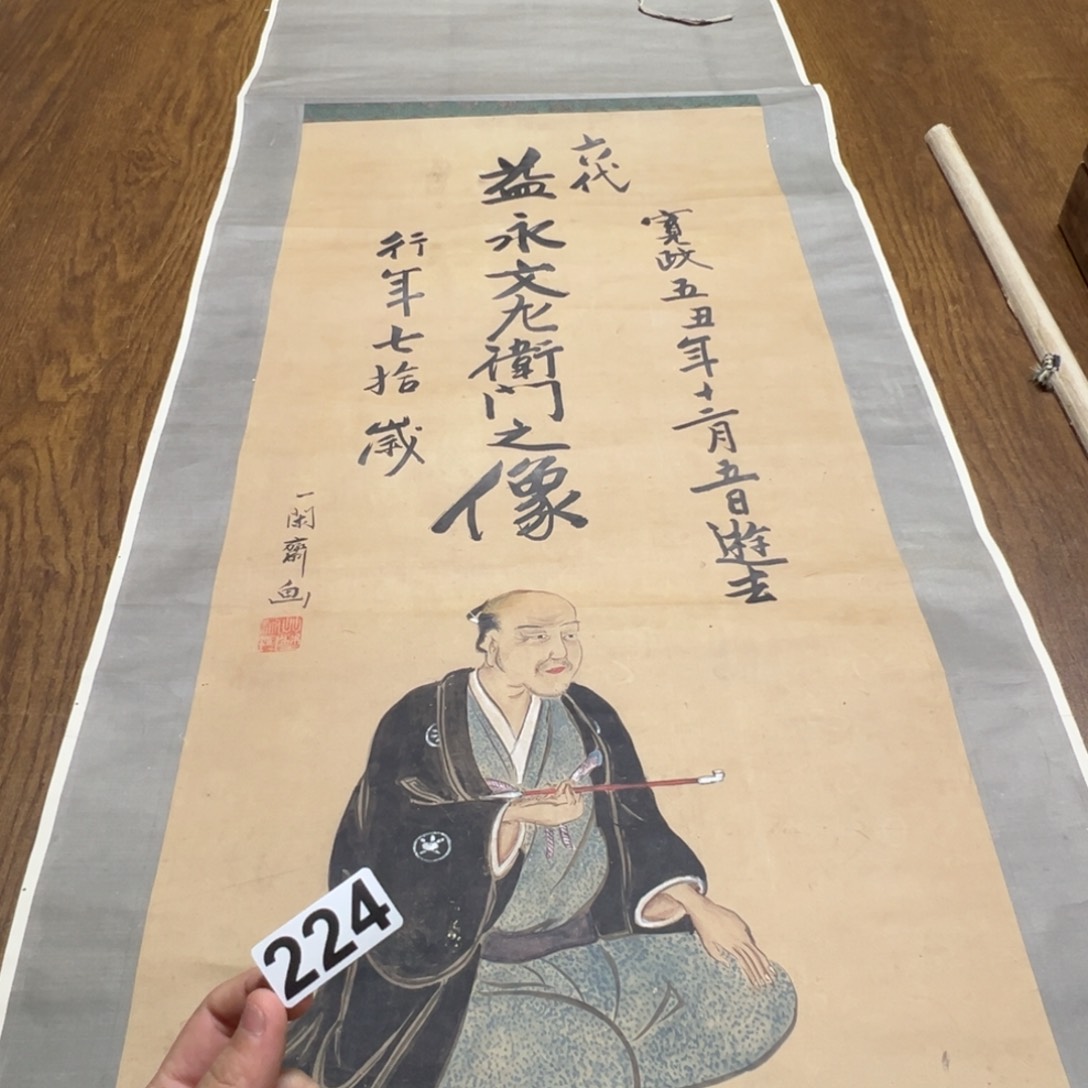 寛政五丑年十二月五日遊去
六代
益永文左衛門之像
行年七拾歳
一閑齋画
224